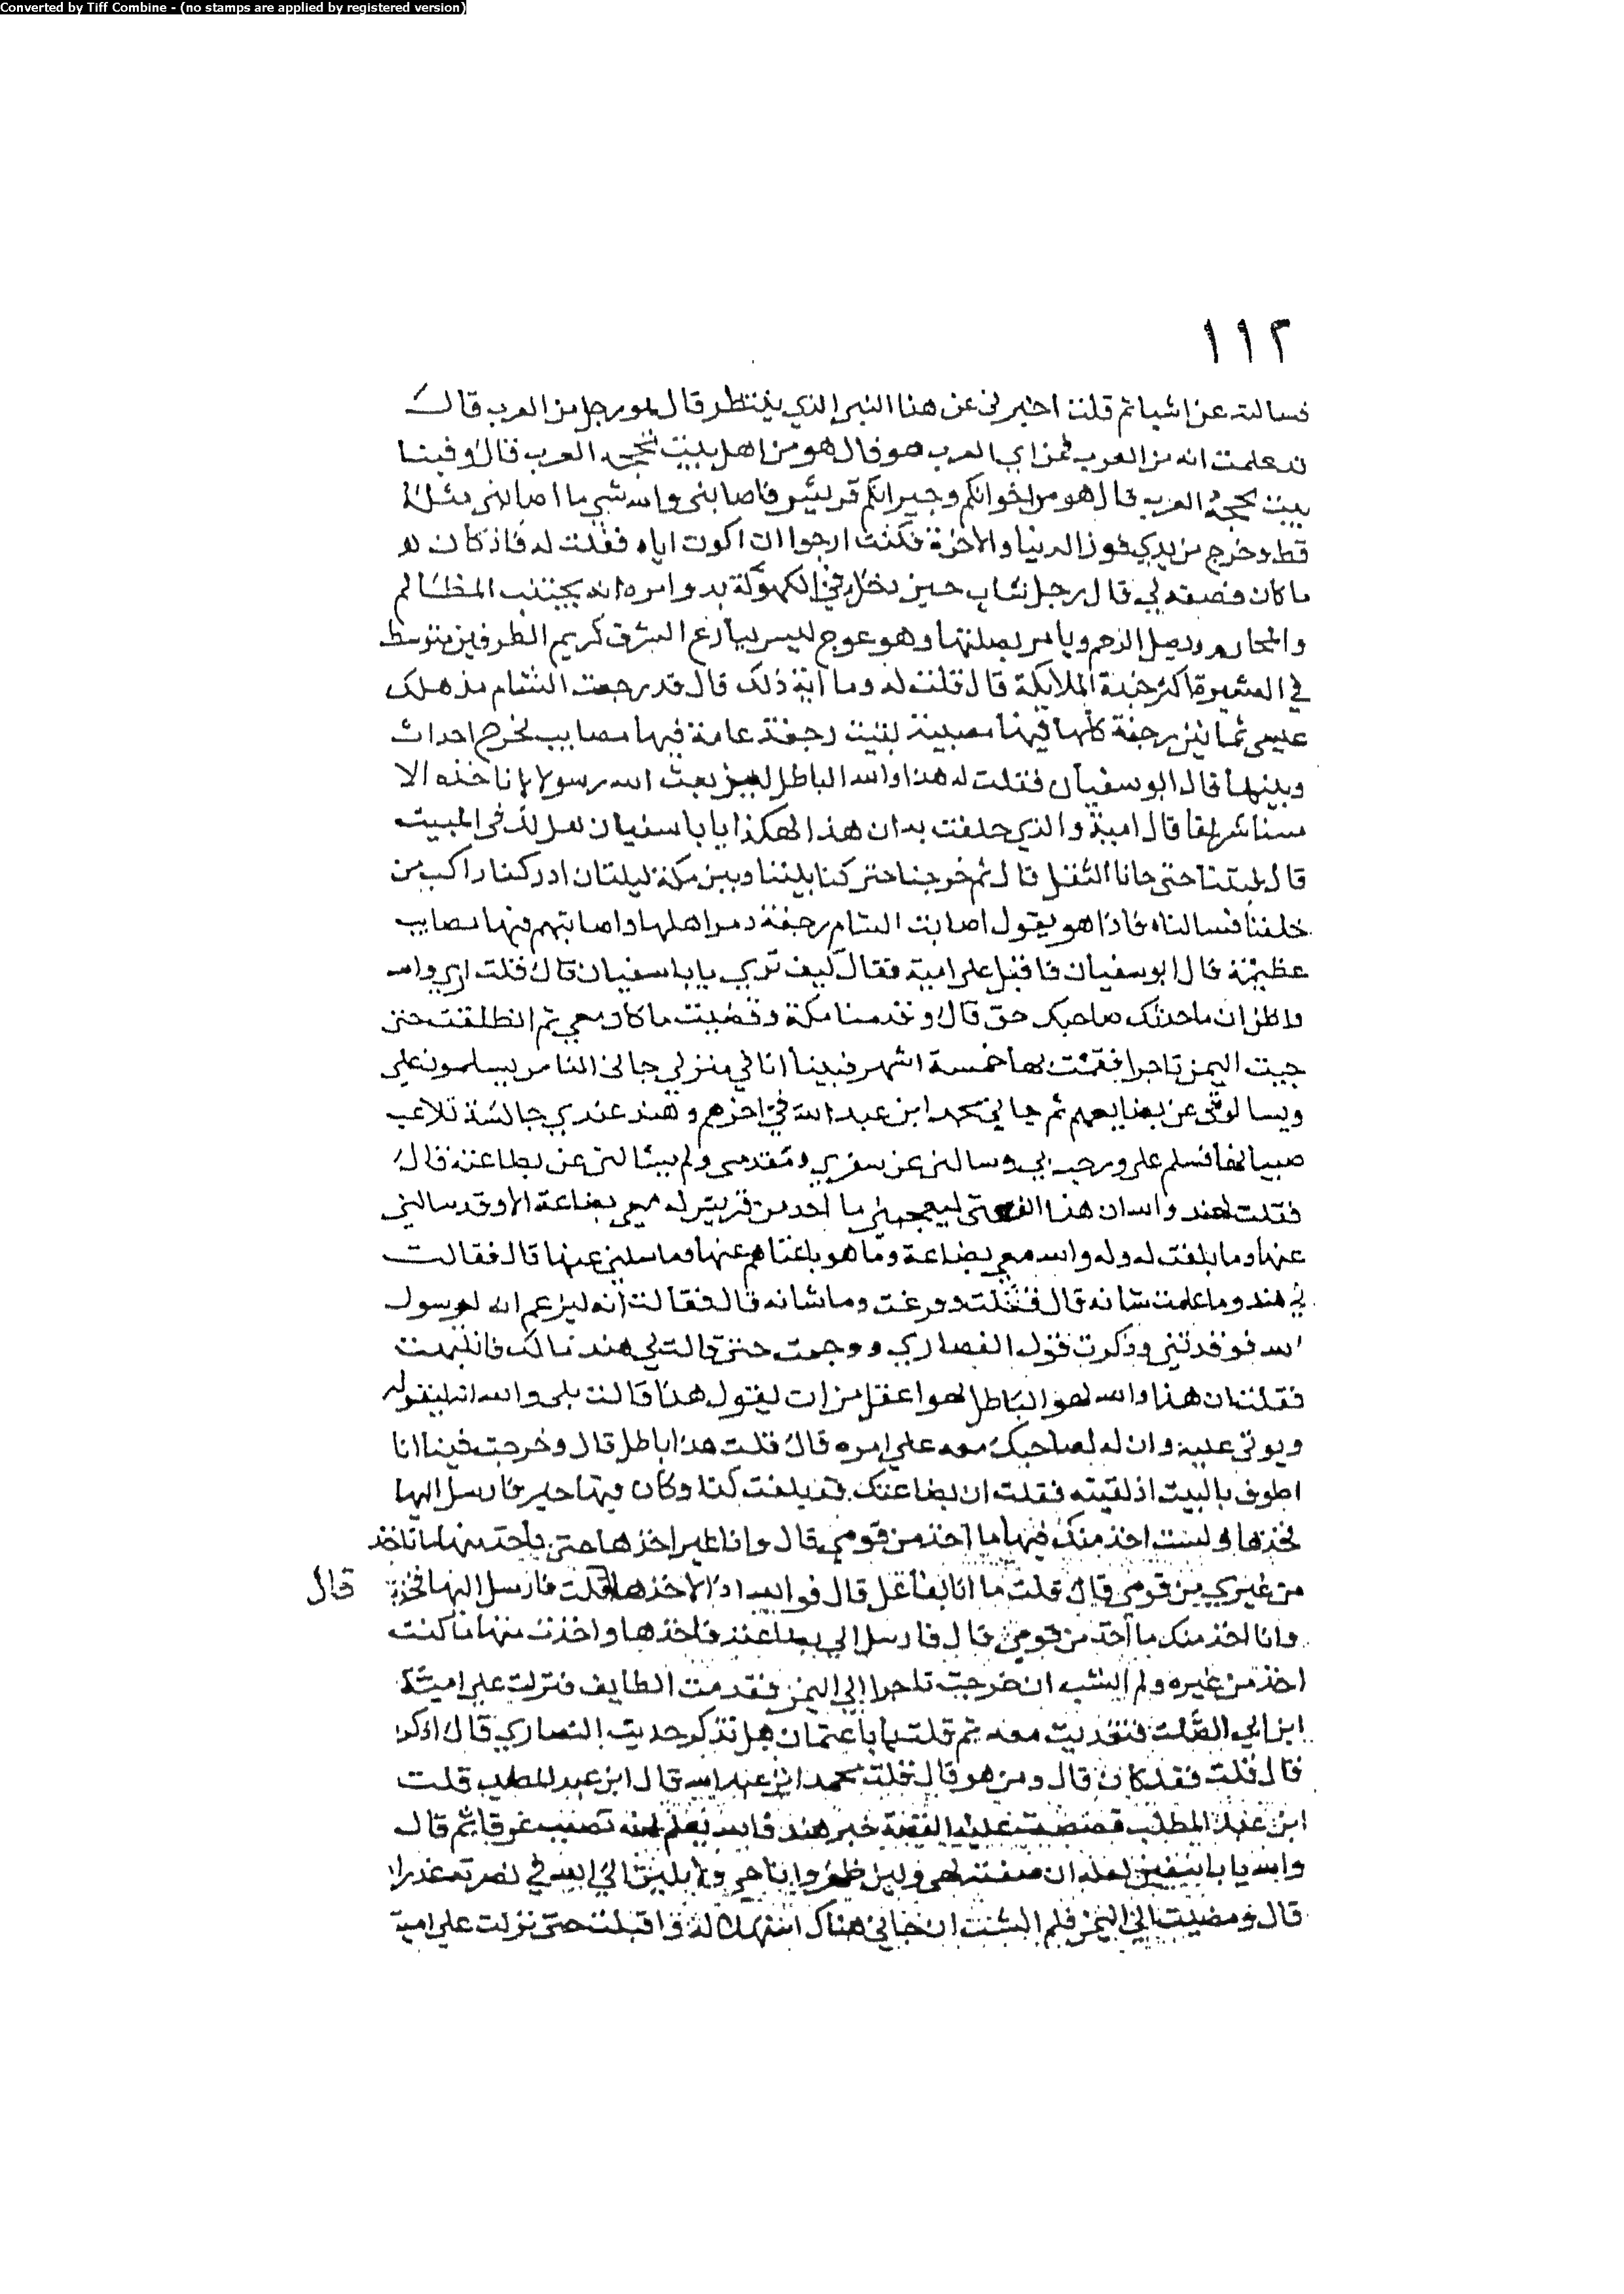 Converted by Tiff Combine - (no stamps are applied by registered version)
١١٢
فسالته عن اشيا ثم قلت اخبرنى عن هذا النبي الذي ينتظر قال هو رجل من العرب قال
قد علمت انه من العرب فمن اي العرب هو قال هو من اهل بيت تحجه العرب قال وفينا
بيت تحجه العرب قال هو من اخوانكم وجيرانكم قريش فاصابنى والله شي ما اصابنى مثله
قط وخرج من يدي فوز الدنيا والاخرة فكنت ارجوا ان اكون اياه فقلت له فاذ كان
ما كان فصفه لي قال رجل شاب حين دخل في الكهولة بدو امره انه يجتنب المظالم
والمحارم ويصل الرحم ويامر بصلتها وهو عوج ليس ينازع الشرف كريم الطرفين متوسط
في العشيرة اكثر جنده الملايكة قال قلت له وما اية ذلك قال قد رجعت الشام مذ هلك
عيسى ثمانين رجفة كلها فيها مصيبة بقيت رجفة عامة فيها مصايب يخرج احداث
وبينها قال ابو سفيان فقلت له هذا والله الباطل لين بعث الله رسولا لا ناخذه الا
مسنا شريفا قال امية والذي حلفت به ان هذا لهكذا يا با سفيان هل لك فى المبيت
قال فبتنا حتى جانا الثقل قال ثم خرجنا حتى كنا بيننا وبين مكة ليلتان ادركنا راكب من
خلفنا فسالناه فاذا هو يقول اصابت الشام رجفة دمر اهلها واصابتهم فيها مصايب
عظيمة قال ابو سفيان فاقبل على امية فقال كيف تري يا با سفيان قال قلت اري والله
واظن ان ما حدثك صاحبك حق قال وقدمنا مكة وقضيت ما كان معي ثم انطلقت حتى
جيت اليمن تاجرا فقمت بها خمسة اشهر فبينا انا في منزلي جانى الناس يسلمون على
ويسالونى عن بضايعهم ثم جاني محمد ابن عبد الله في اخرهم وهند عندي جالسة تلاعب
صبيا لها فسلم على ورحب بي وسالنى عن سفري ومقدمى ولم يسالنى عن بضاعته قال
فقلت لهند والله ان هذا الفتى ليعجبنى ما احد من قريش له معي بضاعة الا وقد سالني
عنها وما بلغت له وله والله معي بضاعة وما هو باغناهم عنها وما سلنى عنها قال فقالت
لي هند وما علمت شانه قال فقلت وفرغت وما شانه قال فقالت انه ليزعم انه لرسول
الله فوقذتني وذكرت قول النصاري ووجمت حتى قالت لي هند مالك فانتبهت
فقلت ان هذا والله لهو الباطل لهو اعقل من ان يقول هذا قالت بلى والله انه ليقوله
ويوتى عليه وان له لصاحبك معه علي امره قال قلت هذا باطل قال وخرجت فبينا انا
اطوف بالبيت اذ لقيته فقلت ان بضاعتك قد بلغت كذا وكان فيها خير فارسل اليها
فخذها ولست اخذ منك فيها ما اخذ من قومي قال وانا غير اخذها حتى ياخذ منها ما تاخذ
من غيري من قومي قال قلت ما انا بفاعل قال فوالله اذا لا اخذها قلت فارسل اليها فخذ قال
وانا اخذ منك ما اخذ من قومي قال فارسل الي بضاعته فاخذها واخذت منها ما كنت
اخذ من غيره ولم انشب ان خرجت تاجرا الي اليمن فقدمت الطايف فنزلت على امية
ابن ابي الصلت فتغديت معه ثم قلت يا با عثمان هل تذكر حديث النصاري قال اذكر
قال قلت فقد كان قال ومن هو قال قلت محمد ابن عبد الله قال ابن عبد المطلب قلت
ابن عبد المطلب قصصت عليه القصة خبر هند فالله يعلم لهنه تصبب عرقا ثم قال
والله يا با سفين لعله ان صفته لهى ولين ظهر وانا حي لابلين الي الله في نصرته عذرا
قال ومضيت الي اليمن فلم انشب ان جاني هناك استهلاله واقبلت حتى نزلت علي امية